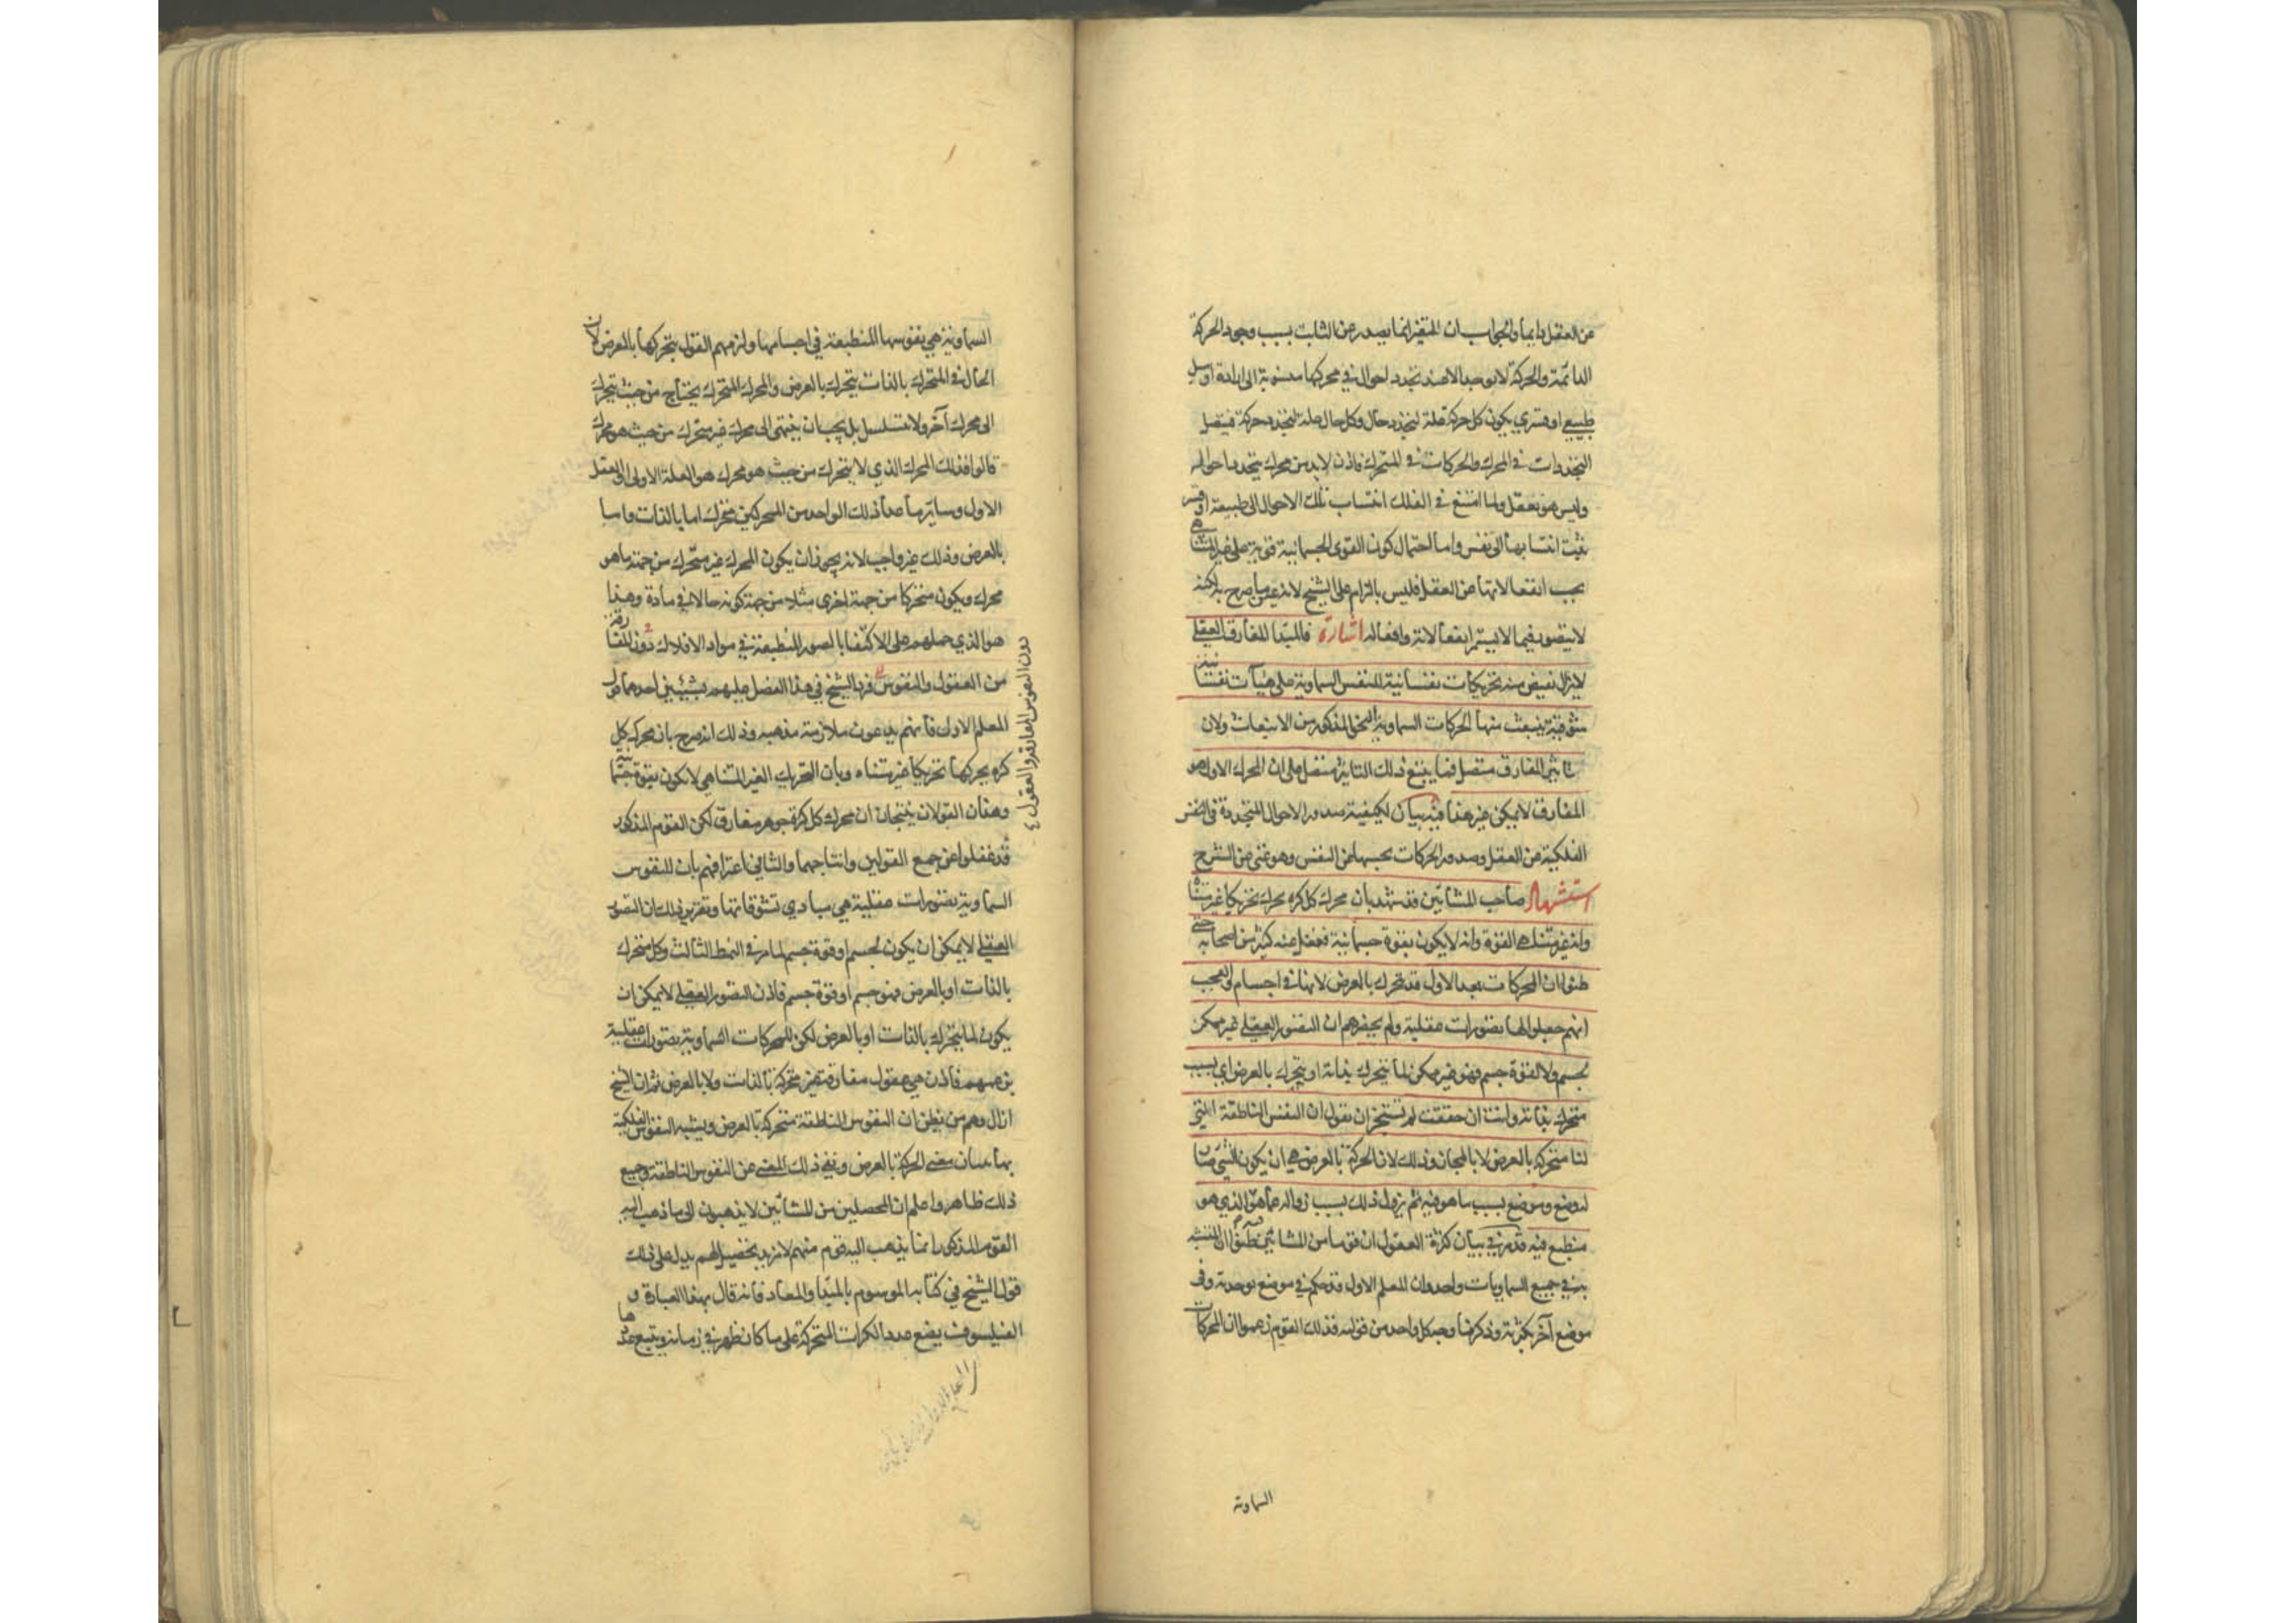 عن العقل دايما والجواب ان المتغير انما يصدر عن الثابت بسبب وجود الحركة
الدائمة والحركة لا توجد الا عند تجدد احوال في محركها منسوبة الى ارادة او ميل
طبيعي او قسري يكون كل حركة علة لتجدد حال وكل حال علة لتجدد حركة فيتصل
التجددات في المحرك والحركات في المتحرك فاذن لا بد من محرك يتجدد احواله
وليس هو بعقل ولما امتنع في الفلك انتساب تلك الاحوال الى طبيعة او قسر
يثبت انتسابها الى نفس واما احتمال كون القوى الجسمانية قوية على غير المتناهي
بحسب انفعالاتها عن العقل فليس بالزام على الشيخ لانه عين ما صرح به لكنه
لا يتصور فيما لا يستمر انفعالاته وافعاله اشارة فالمبدأ المفارق العقلي
لا يزال يفيض منه تحريكات نفسانية للنفس السماوية على هيآت نفسانية
شوقية ينبعث منها الحركات السماوية النحو المذكور من الانبعاث ولان
تاثير المفارق متصل فما يتبع ذلك التاثير متصل على ان المحرك الاول هو
المفارق لا يمكن غير هذا فيه بيان لكيفية صدور الاحوال المتجددة في النفس
الفلكية من العقل وصدور الحركات بحسبها من النفس وهو غني عن الشرح
استشهاد صاحب المشائين قد شهد بان محرك كل كره يحرك تحريكا غير متناه
وانه غير متناهي القوة وانه لا يكون بقوة جسمانية فغفل عنه كثير من اصحابه حتى
ظنوا ان المحركات بعد الاول قد تتحرك بالعرض لانها في اجسام والعجب
انهم جعلوا لها تصورات عقلية ولم يحضرهم ان التصور العقلي غير ممكن
لجسم ولا لقوة جسم فهو غير ممكن لما يتحرك بذاته او يتحرك بالعرض اي بسبب
متحرك بذاته وانت ان حققت لم تستجز ان تقول ان النفس الناطقة التي
لنا متحركة بالعرض الا بالمجاز وذلك لان الحركة بالعرض هي ان يكون الشيء صار
له وضع وموضع بسبب ما هو فيه ثم يزول ذلك بسبب زواله عما هو الذي هو
منطبع فيه قد مر في بيان كثرة العقول ان قوما من المشائين ظنوا ان المتشبه
به في جميع السماويات واحد وان المعلم الاول قد حكم في موضع بوحدته وفي
موضع آخر بكثرته وذكرنا وجه كل واحد من قوليه فذلك القوم زعموا ان المحركات
السماوية
السماوية هي نفوسها المنطبعة في اجسامها ولزمهم القول بتحركها بالعرض لان
الحال في المتحرك بالذات يتحرك بالعرض والمحرك المتحرك يحتاج من حيث يتحرك
الى محرك آخر ولا يتسلسل بل يجب ان ينتهي الى محرك غير متحرك من حيث هو محرك
قالوا فذلك المحرك الذي لا يتحرك من حيث هو محرك هو العلة الاولى او العقل
الاول وساير ما عدا ذلك الواحد من المحركين متحرك اما بالذات واما
بالعرض وذلك غير واجب لانه يجوز ان يكون المحرك غير متحرك من جهة ما هو
محرك ويكون متحركا من جهة اخرى مثلا من جهة كونه حالا في مادة وهذا
هو الذي حملهم على الاكتفا بالصور المنطبعة في مواد الافلاك دون المفارقة
من العقول والنفوس فرد الشيخ في هذا الفصل عليهم بشيئين احدهما قول
دون النفوس المفارقة والعقول
المعلم الاول فانهم يدعون ملازمة مذهبه وذلك انه صرح بان محرك كل
كره يحركها تحريكا غير متناه وبان التحريك الغير المتناهي لا يكون بقوة جسمانية
وهذان القولان ينتجان ان محرك كل كرة جوهر مفارق لكن القوم المذكور
قد غفلوا عن جمع القولين وانتاجهما والثاني اعترافهم بان للنفوس
السماوية تصورات عقلية هي مبادي تشوقاتها وتقريره ذلك ان التصور
العقلي لا يمكن ان يكون لجسم او قوة جسم لما مر في النمط الثالث وكل متحرك
بالذات او بالعرض فهو جسم او قوة جسم فاذن التصور العقلي لا يمكن ان
يكون لما يتحرك بالذات او بالعرض لكن للمحركات السماوية تصورات عقلية
بزعمهم فاذن هي عقول مفارقة غير متحركة بالذات ولا بالعرض ثم ان الشيخ
ازال وهم من يظن ان النفوس الناطقة متحركة بالعرض ويشبه النفوس الفلكية
بها ببيان معنى الحركة بالعرض ونفي ذلك المعنى عن النفوس الناطقة وجميع
ذلك ظاهر واعلم ان المحصلين من المشائين لا يذهبون الى ما ذهب اليه
القوم المذكور انما يذهب اليه قوم منهم لا مزيد تحصيل لهم يدل على ذلك
قول الشيخ في كتابه الموسوم بالمبدأ والمعاد فانه قال بهذا العبارة و
الفيلسوف يضع عدد الكرات المتحركة على ما كان ظهر في زمانه ويتبع عددها